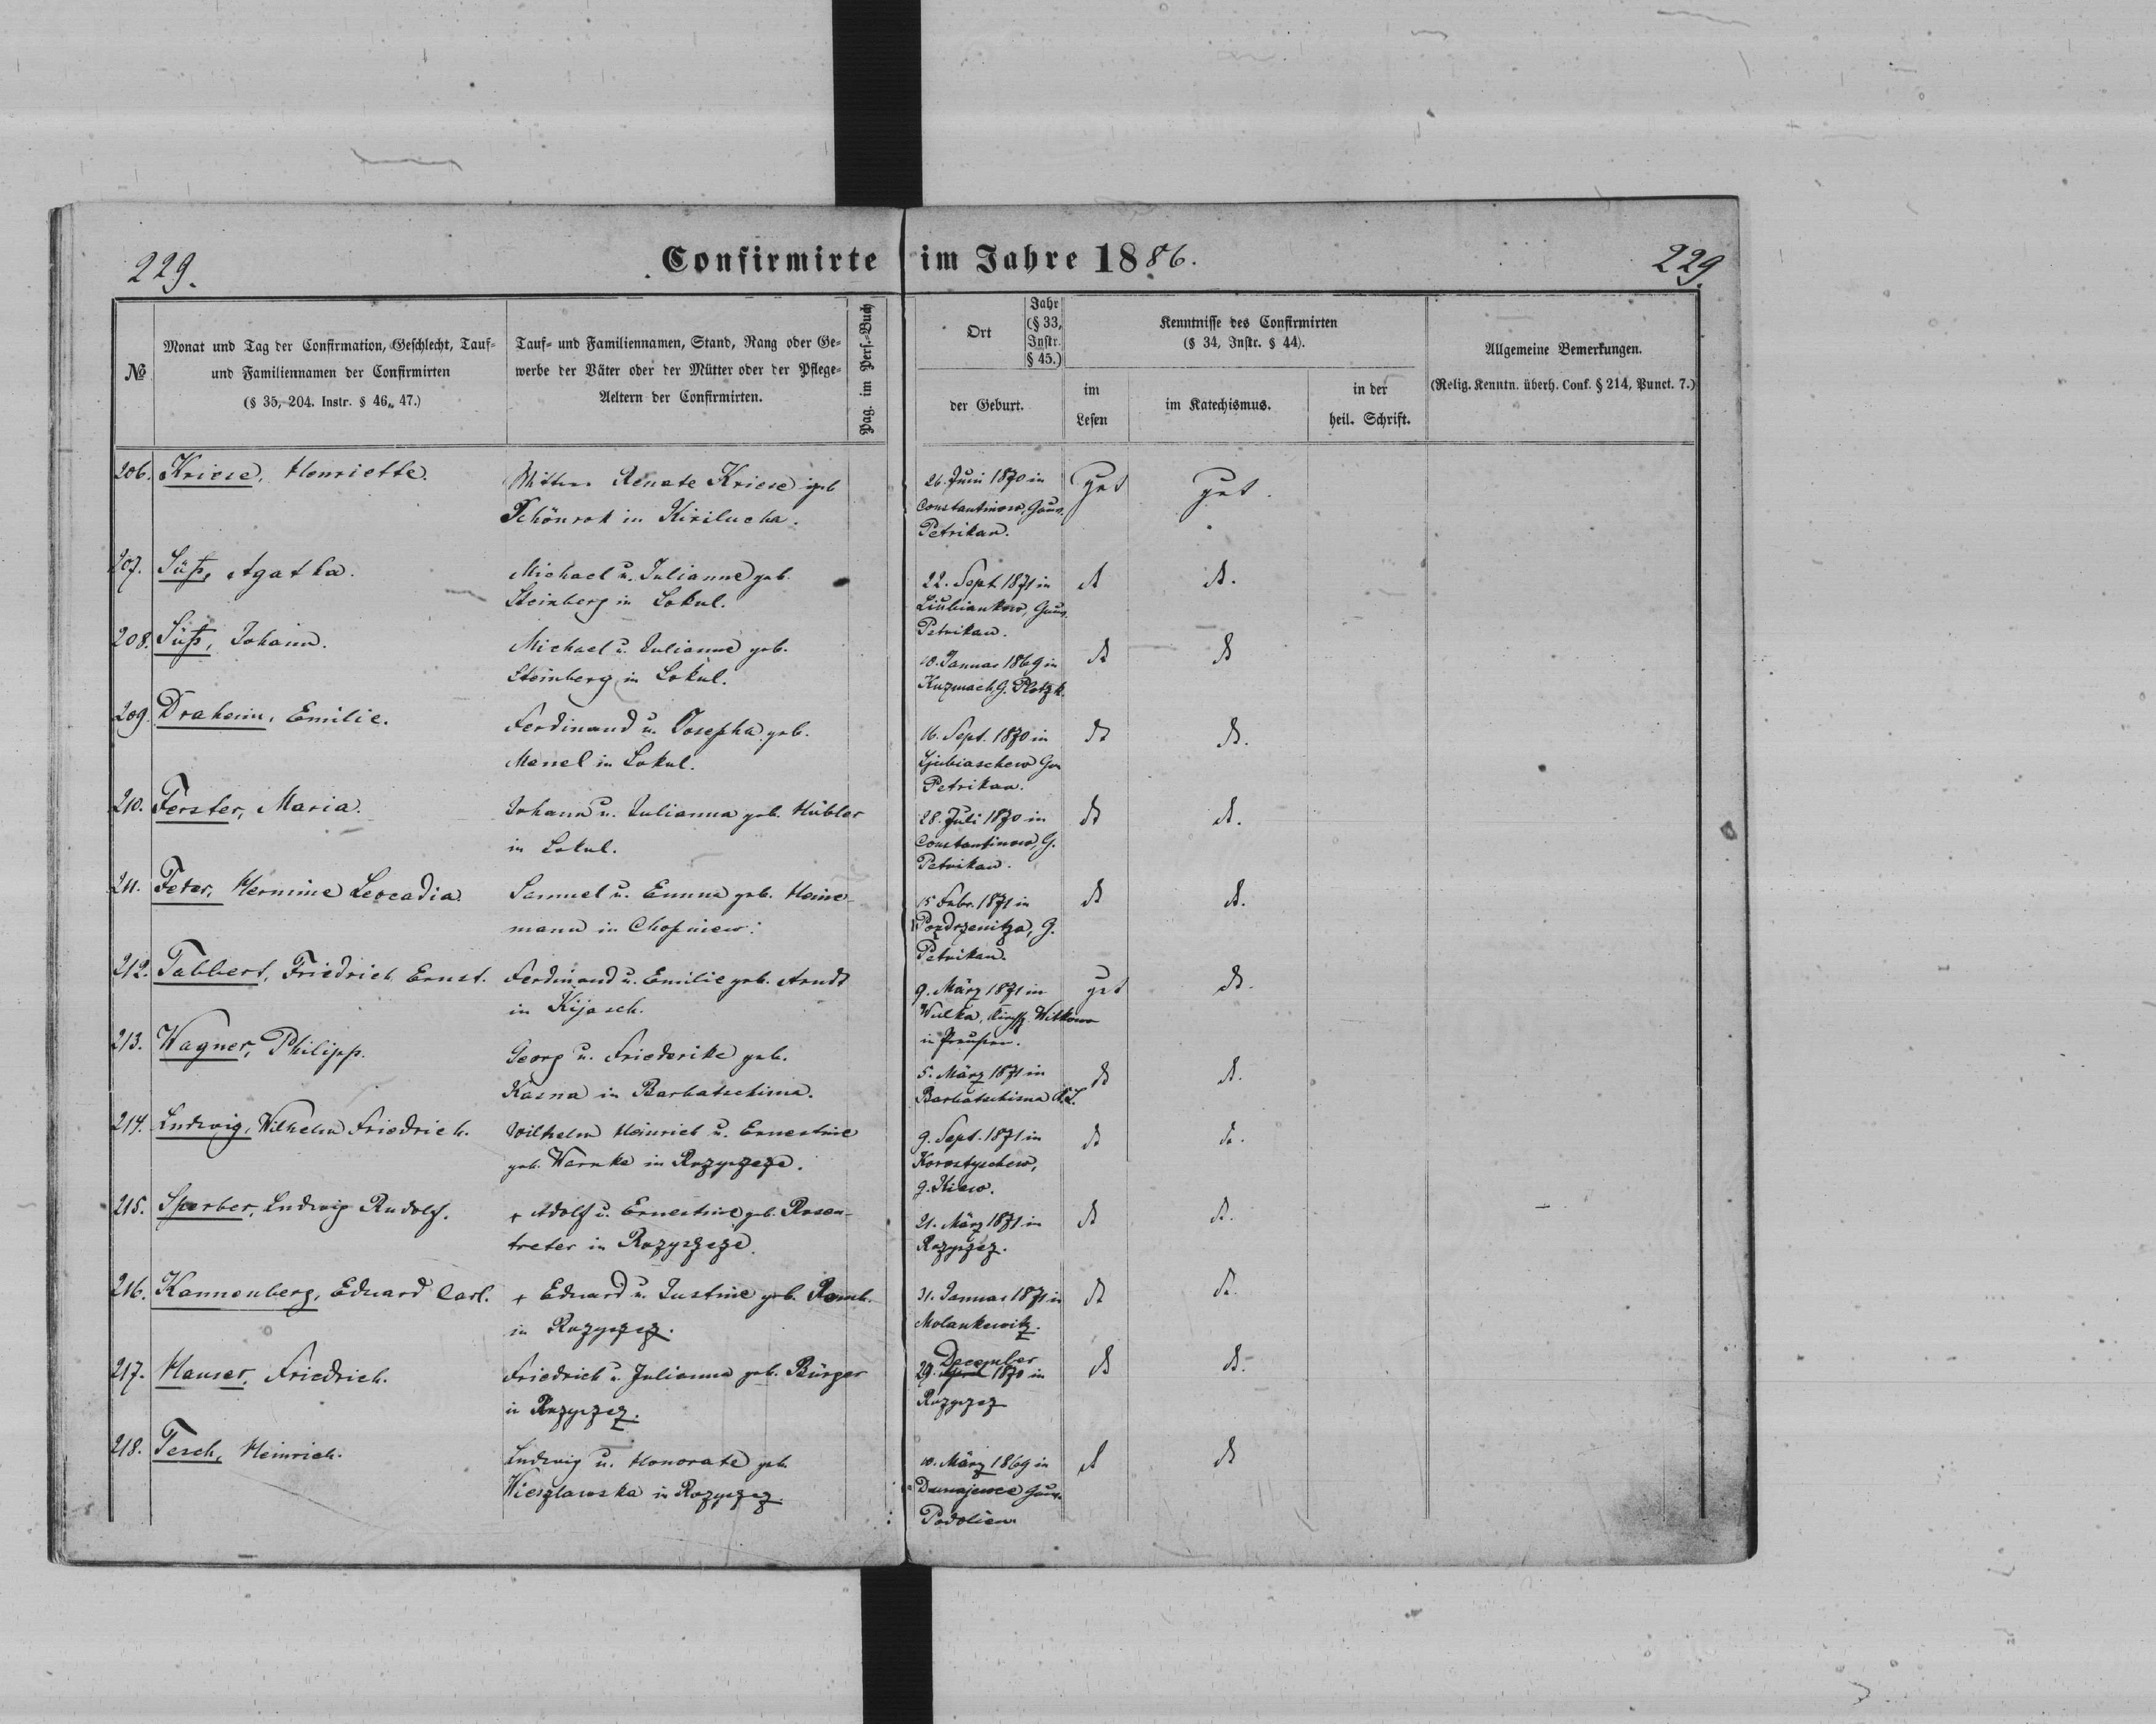 229.
Confirmirte im Jahre 1886.
229.
№
Monat und Tag der Confirmation, Geschlecht, Tauf-
und Familiennamen der Confirmirten
(§ 35, 204. Instr. § 46, 47.)
Tauf- und Familiennamen, Stand, Rang oder Ge-
werbe der Väter oder der Mütter oder der Pflege-
Aeltern der Confirmirten.
Pag. im Pers.-Buch
Ort
Jahr
(§ 33,
Instr.
§ 45.)
der Geburt.
Kenntnisse des Confirmirten
(§ 34, Instr. § 44).
im
Lesen
im Katechismus.
in der
heil. Schrift.
Allgemeine Bemerkungen.
(Relig. Kenntn. überh. Conf. § 214, Punct. 7.)
206. Kriese, Henriette.
Renate Kriese geb
Schönrok in Kirilucha.
26. Juni 1870 in
Constantinow, Gouv.
Petrikau.
gut
gut.
207. Süß, Agatha.
Michael u. Julianne geb.
Steinberg in Lokul.
22. Sept. 1871 in
Liubiankow, Gouv.
Petrikau.
dt
dt.
208. Süß, Johann.
Michael u. Julianne geb.
Steinberg in Lokul.
10. Januar 1869 in
Kuzmach, G. Plotzk.
dt
dt
209. Draheim, Emilie.
Ferdinand u. Josepha geb.
Manel in Lokul.
16. Sept. 1870 in
Ljubiaschew
Petrikau.
dt
dt.
210. Ferster, Maria.
Johann u. Julianna geb. Hübler
in Lokul.
28. Juli 1870 in
Constantinow, G.
Petrikau.
dt
dt.
211. Feter, Hermine Leocadia
Samuel u. Emma geb. Heine-
mann in Chopniew.
15 Febr. 1871 in
Pozdrzenitza, G.
Petrikau.
dt
dt.
212. Tabbert, Friedrich Ernst.
Ferdinand u. Emilie geb. Arndt
in Kijasch.
9. März 1871 in
Wulka, Witkowo
in Preußen.
gut
dt.
213. Wagner, Philipp.
Georg u. Friederike geb.
Kasna in Barbatschisna.
5. März 1871 in
Barbatschisna
dt
dt.
214. Ludwig, Wilhelm Friedrich.
Wilhelm Heinrich u. Ernestine
geb. Warnke in Rozyszcze.
9. Sept. 1871 in
Korostyschew,
G. Kiew.
dt
dt.
215. Sperber, Ludwig Rudolf.
+ Adolf u. Ernestine geb. Rosen-
treter in Rozyszcze.
21. März 1871 in
Rozyszcz.
dt
dt.
216. Kannenberg, Eduard Carl.
+ Eduard u. Justine geb.
in Rozyszcz.
31. Januar 1871 in
Molankewitz.
dt
dt.
217. Hauser, Friedrich.
Friedrich u. Julianna geb. Bürger
in Rozyszcz.
December
29. April 1870 in
Rozyszcz
dt
dt.
218. Tesch, Heinrich.
Ludwig u. Honorate geb.
Wieszlawska in Rozyszcz.
10. März 1869 in
Dunajewce Gouv.
Podolien
dt
dt